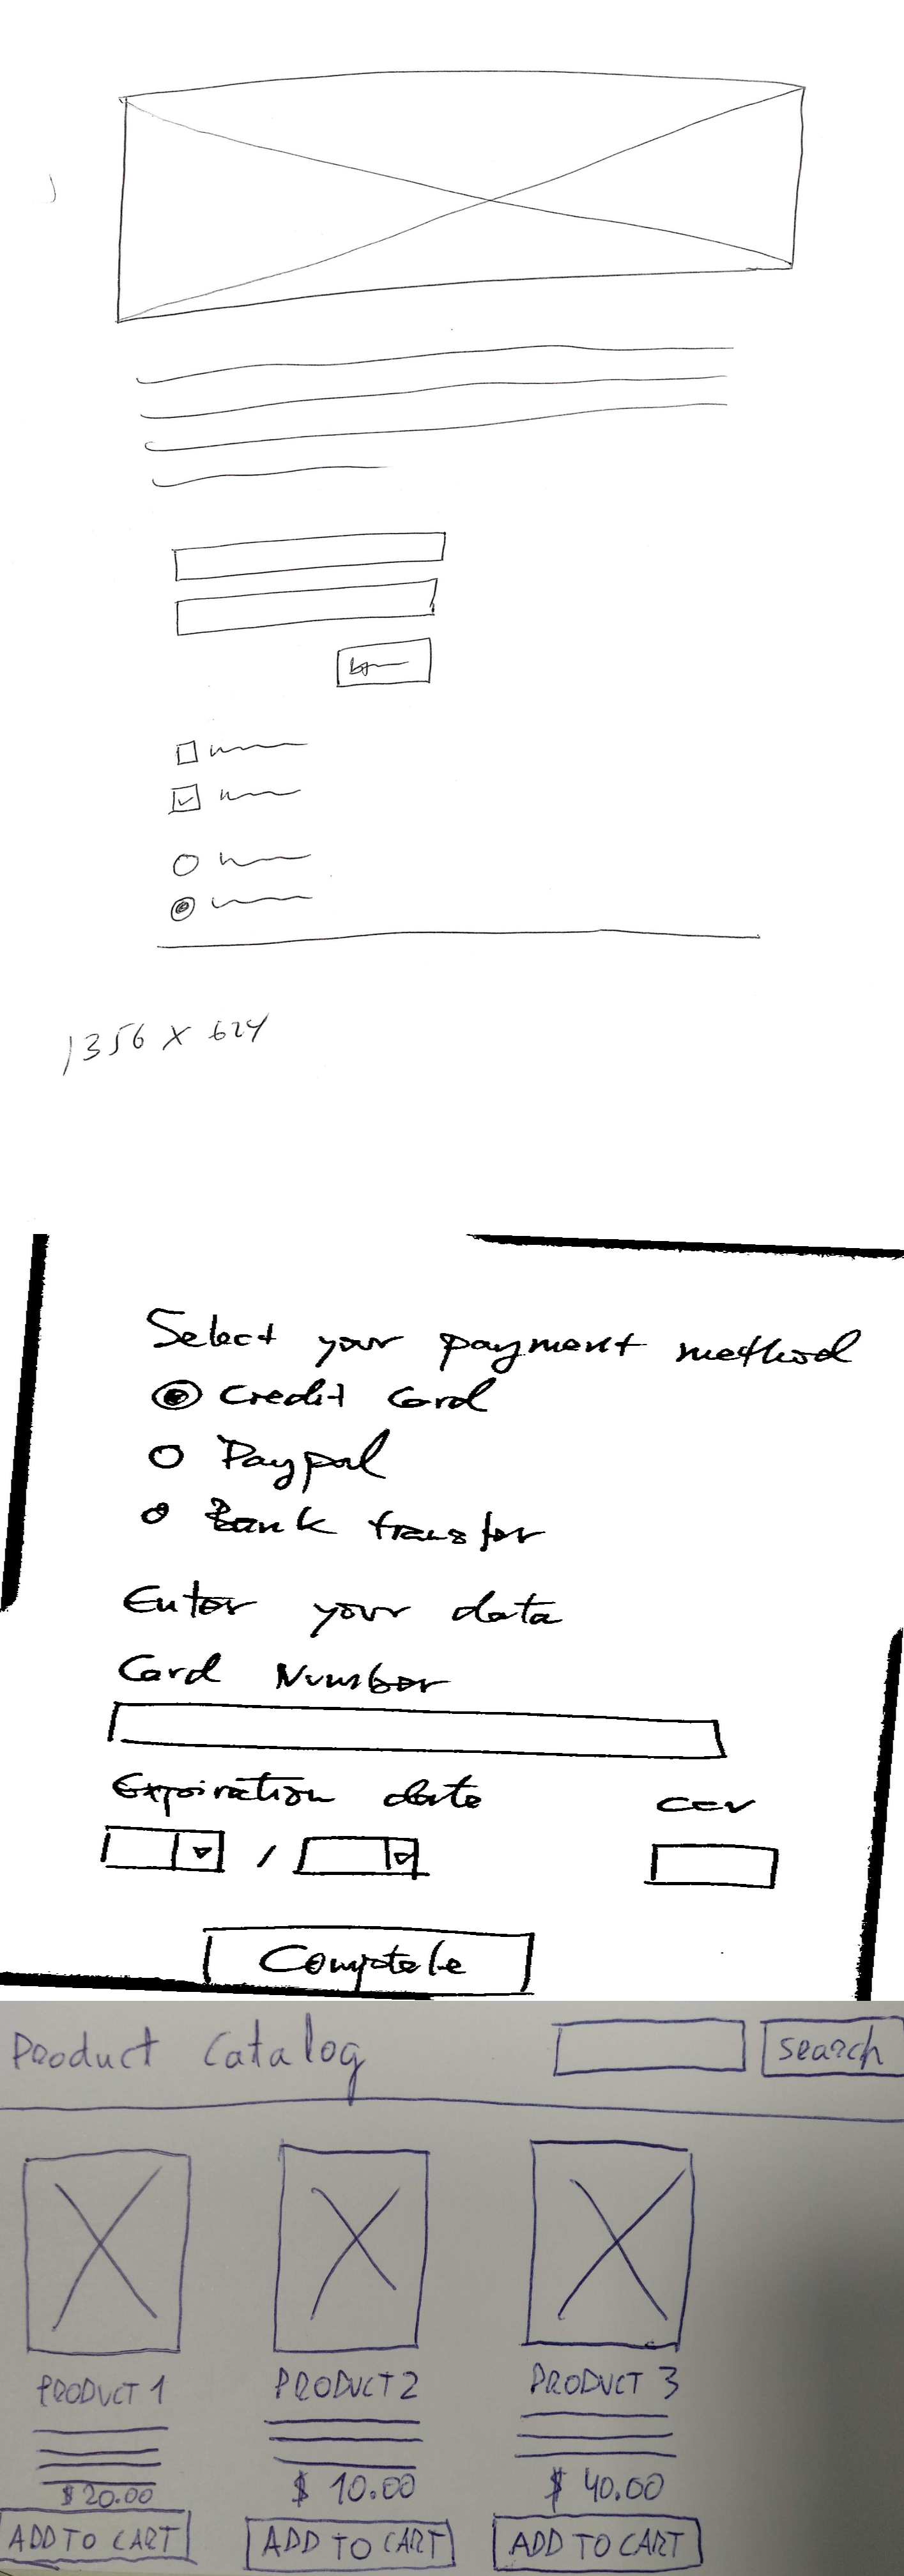 1356 X 624
Select your payment method
Credit Card
Paypal
Bank transfer
Enter your data
Card Number
Expiration date CCV
/
Complete
Product Catalog search
PRODUCT 1 PRODUCT 2 PRODUCT 3
$20.00 $ 10.00 $ 40.00
ADD TO CART ADD TO CART ADD TO CART